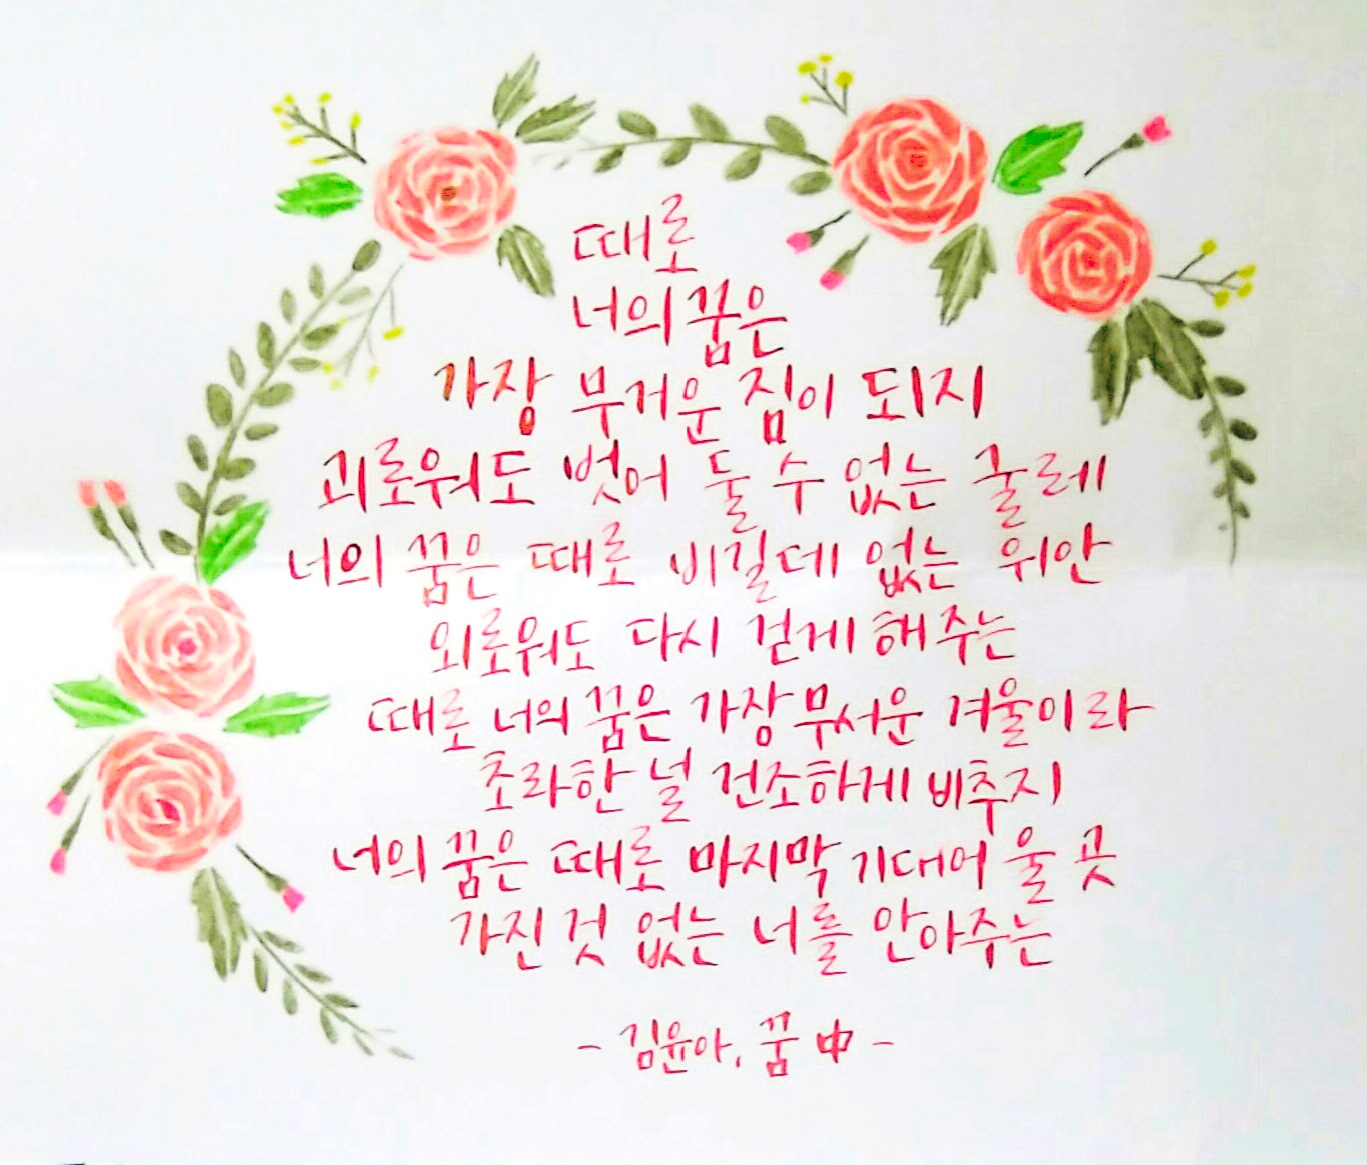 때로
너의 꿈은
가장 무거운 짐이 되지
괴로워도 벗어 둘 수 없는 굴레
너의 꿈은 때로 비길데 없는 위안
외로워도 다시 걷게 해주는
때로 너의 꿈은 가장 무서운 겨울이라
초라한 널 건조하게 비추지
너의 꿈은 때로 마지막 기대어 울 곳
가진 것 없는 너를 안아주는
- 김윤아, 꿈 中 -